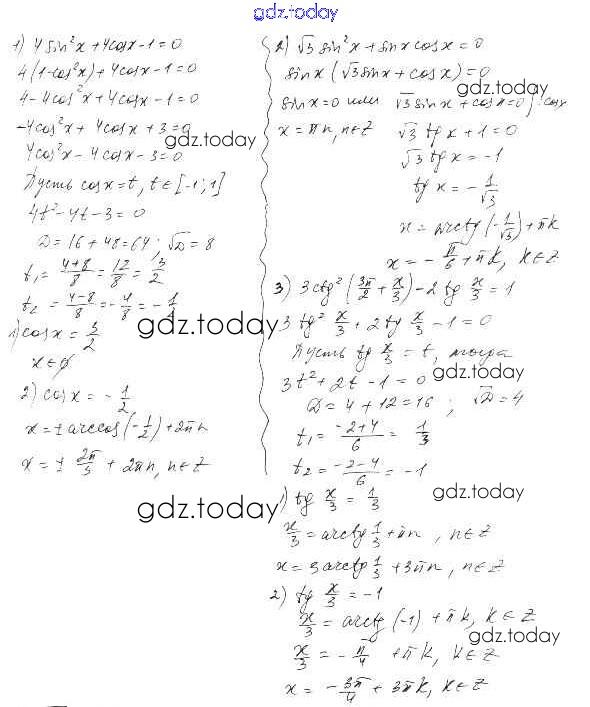 gdz.today
1) 4 sin²x + 4cosx - 1 = 0
4(1-cos²x) + 4cosx - 1 = 0
4 - 4cos²x + 4cosx - 1 = 0
-4cos²x + 4cosx + 3 = 0
gdz.today
4cos²x - 4cosx - 3 = 0
Пусть cosx = t, t ∈ [-1; 1]
4t² - 4t - 3 = 0
D = 16 + 48 = 64; √D = 8
t₁ = (4+8)/8 = 12/8 = 3/2
t₂ = (4-8)/8 = -4/8 = -1/2
1) cosx = 3/2
gdz.today
x ∈ ∅
2) cosx = -1/2
x = ± arccos(-1/2) + 2πn
x = ± 2π/3 + 2πn, n ∈ Z
gdz.today
2) √3 sin²x + sinx cosx = 0
sinx (√3 sinx + cosx) = 0
gdz.today
sinx = 0 или √3 sinx + cosx = 0 | : cosx
x = πn, n ∈ Z √3 tgx + 1 = 0
√3 tgx = -1
gdz.today
tgx = -1/√3
x = arctg(-1/√3) + πk
x = -π/6 + πk, k ∈ Z
3) 3ctg²(3π/2 + x/3) - 2 tg x/3 = 1
3 tg² x/3 + 2 tg x/3 - 1 = 0
Пусть tg x/3 = t, тогда
gdz.today
3t² + 2t - 1 = 0
D = 4 + 12 = 16; √D = 4
t₁ = (-2+4)/6 = 1/3
t₂ = (-2-4)/6 = -1
1) tg x/3 = 1/3
gdz.today
x/3 = arctg 1/3 + πn, n ∈ Z
x = 3arctg 1/3 + 3πn, n ∈ Z
2) tg x/3 = -1
x/3 = arctg(-1) + πk, k ∈ Z
gdz.today
x/3 = -π/4 + πk, k ∈ Z
x = -3π/4 + 3πk, k ∈ Z